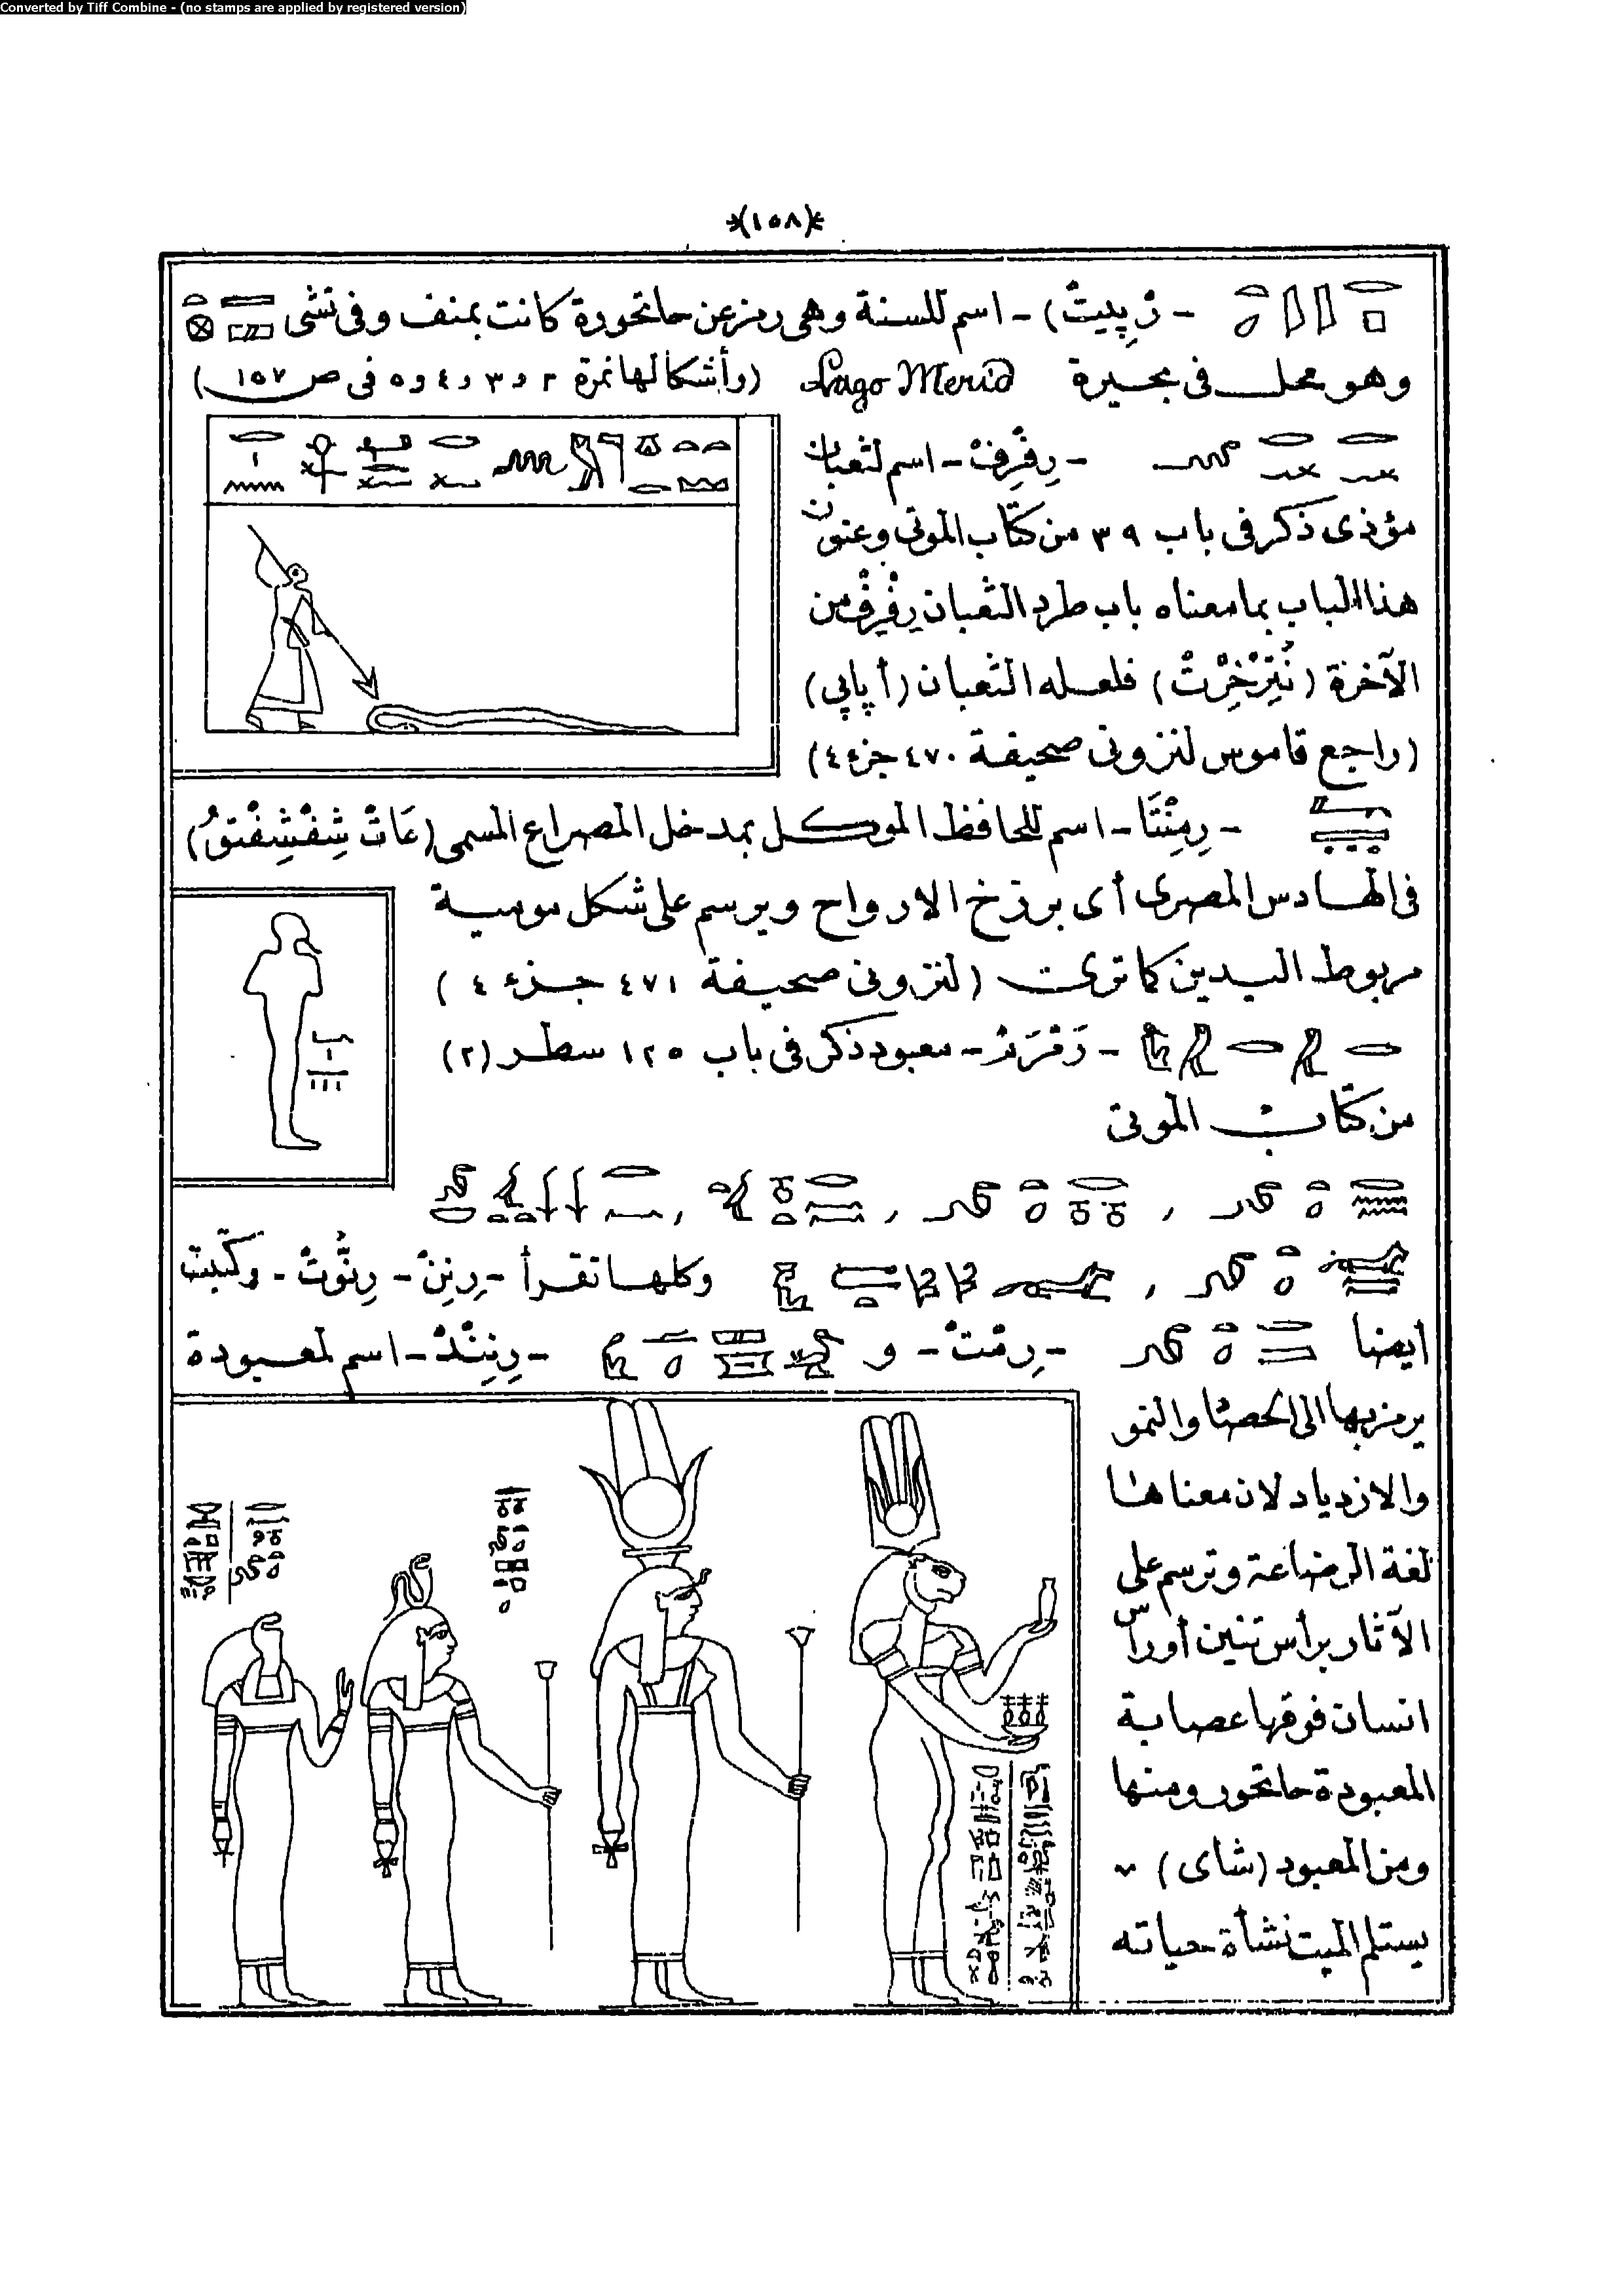 Converted by Tiff Combine - (no stamps are applied by registered version)
*(١٥٨)*
- رْپِيتْ) - اسم للسنة وهى رمز عن حاتحورة كانت بمنف وفى تشى
وهو محل فى بحيرة Lago Merid (وأشكالها نمرة ٢ و ٣ و ٤ و ٥ فى ص ١٥٧)
- رِفْرِفْ - اسم لثعبان
مؤذى ذكر فى باب ٣٩ من كتاب الموتى وعنون
هذا الباب بما معناه باب طرد الثعبان رِفْرِفْ من
الآخرة (نُتِرْخِرْتْ) فلعله الثعبان (أپاپى)
(راجع قاموس لنزونى صحيفة ٤٧٠ جزء ٤)
- رِمِنْتَا - اسم للحافظ الموكل بمدخل المصراع المسمى (عَاتْ شِفْشِفْتوُ)
فى الهادس المصرى أى برزخ الارواح ويرسم على شكل مومية
مربوط اليدين كما ترى (لنزونى صحيفة ٤٧١ جزء ٤)
- معبود ذكر فى باب ١٢٥ سطر (٢)
من كتاب الموتى
وكلها تقرأ - رِنِنْ - رِنُّوتْ - وكتبت
أيضا - رِمْتْ - و - رِنِنْدْ - اسم لمعبودة
يرمز بها الى الحصاد والنمو
والازدياد لان معناها
لغة الرضاعة وترسم على
الآثار برأس تنين أو رأس
انسان فوقها عصابة
المعبودة حاتحور ومنها
ومن المعبود (شاى)
يستلم الميت نشأة حياته